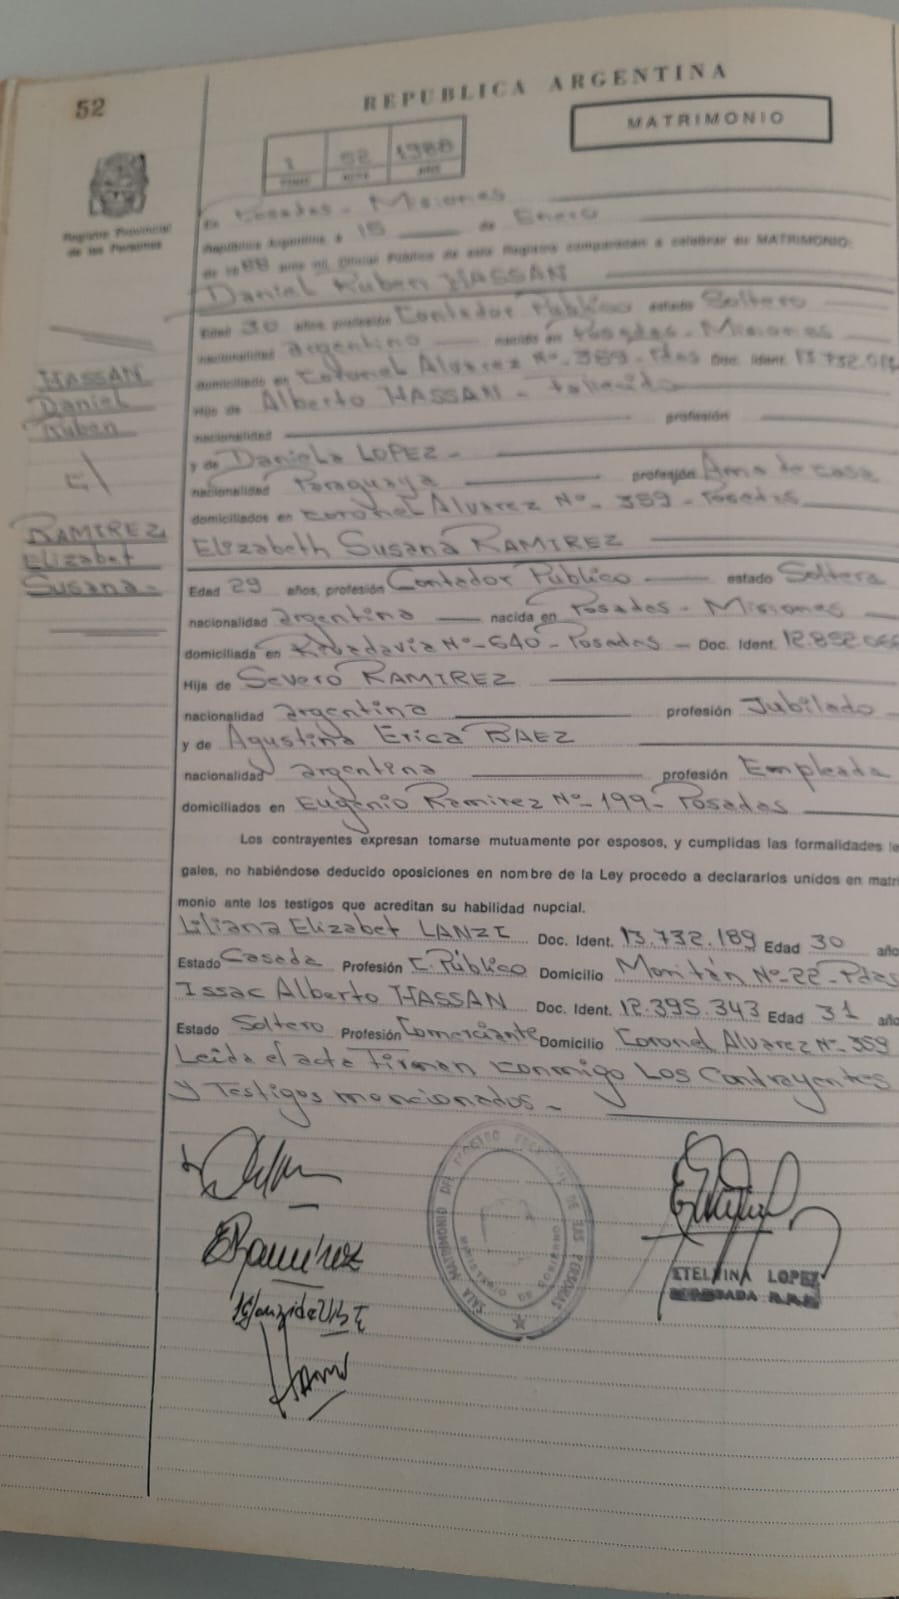 52
REPUBLICA ARGENTINA
MATRIMONIO
1 52 1988
TOMO ACTA AÑO
Registro Provincial
de las Personas
En Posadas - Misiones
República Argentina a 15 de Enero
de 1988 ante mí, Oficial Público de este Registro comparecen a celebrar su MATRIMONIO:
Daniel Ruben HASSAN
Edad 30 años, profesión Contador Público estado Soltero
nacionalidad argentino nacido en Posadas - Misiones
domiciliado en Coronel Alvarez Nº- 389 - Pdas Doc. Ident. 13.732.
Hijo de Alberto HASSAN - Fallecido
nacionalidad profesión
y de Daniela LOPEZ -
nacionalidad Paraguaya profesión Ama de casa
domiciliados en Coronel Alvarez Nº- 389 - Posadas
HASSAN
Daniel
Ruben
c/
RAMIREZ
Elizabet
Susana -
Elizabeth Susana RAMIREZ
Edad 29 años, profesión Contador Público estado Soltera
nacionalidad argentina nacida en Posadas - Misiones
domiciliada en Rivadavia Nº- 640 - Posadas - Doc. Ident. 12.852.
Hija de Severo RAMIREZ
nacionalidad argentina profesión Jubilado
y de Agustina Erica BAEZ
nacionalidad argentina profesión Empleada
domiciliados en Eugenio Ramirez Nº- 199 - Posadas
Los contrayentes expresan tomarse mutuamente por esposos, y cumplidas las formalidades le
gales, no habiéndose deducido oposiciones en nombre de la Ley procedo a declararlos unidos en matri
monio ante los testigos que acreditan su habilidad nupcial.
Liliana Elizabet LANZI Doc. Ident. 13.732.189 Edad 30 año
Estado Casada Profesión C. Público Domicilio Nº-22- Pdas
Issac Alberto HASSAN Doc. Ident. 12.395.343 Edad 31 año
Estado Soltero Profesión Comerciante Domicilio Coronel Alvarez Nº- 389
Leida el acta Firman conmigo Los Contrayentes
y Testigos mencionados -
ERamirez
SALA MATRIMONIO DEL REGISTRO PROVINCIAL DE LAS PERSONAS
MINISTERIO DE GOBIERNO
ETELVINA LOPEZ